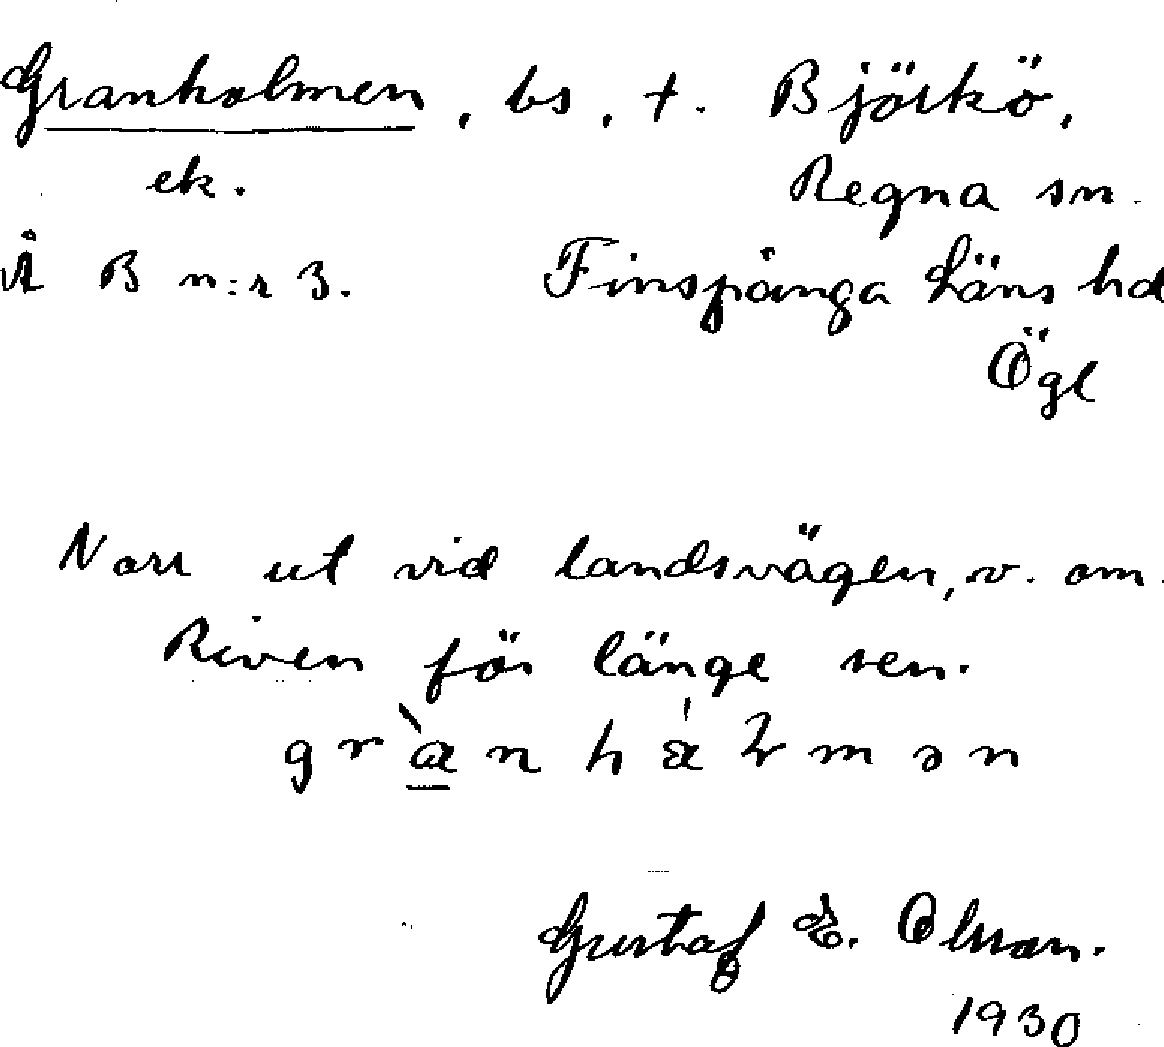 Granholmen, bs, t. Björkö,
ek. Regna sn.
Å B n:r 3. Finspånga läns hd
Ögl
Norr ut vid landsvägen, v. om.
Riven för länge sen.
Gustaf E. Olsson.
1930